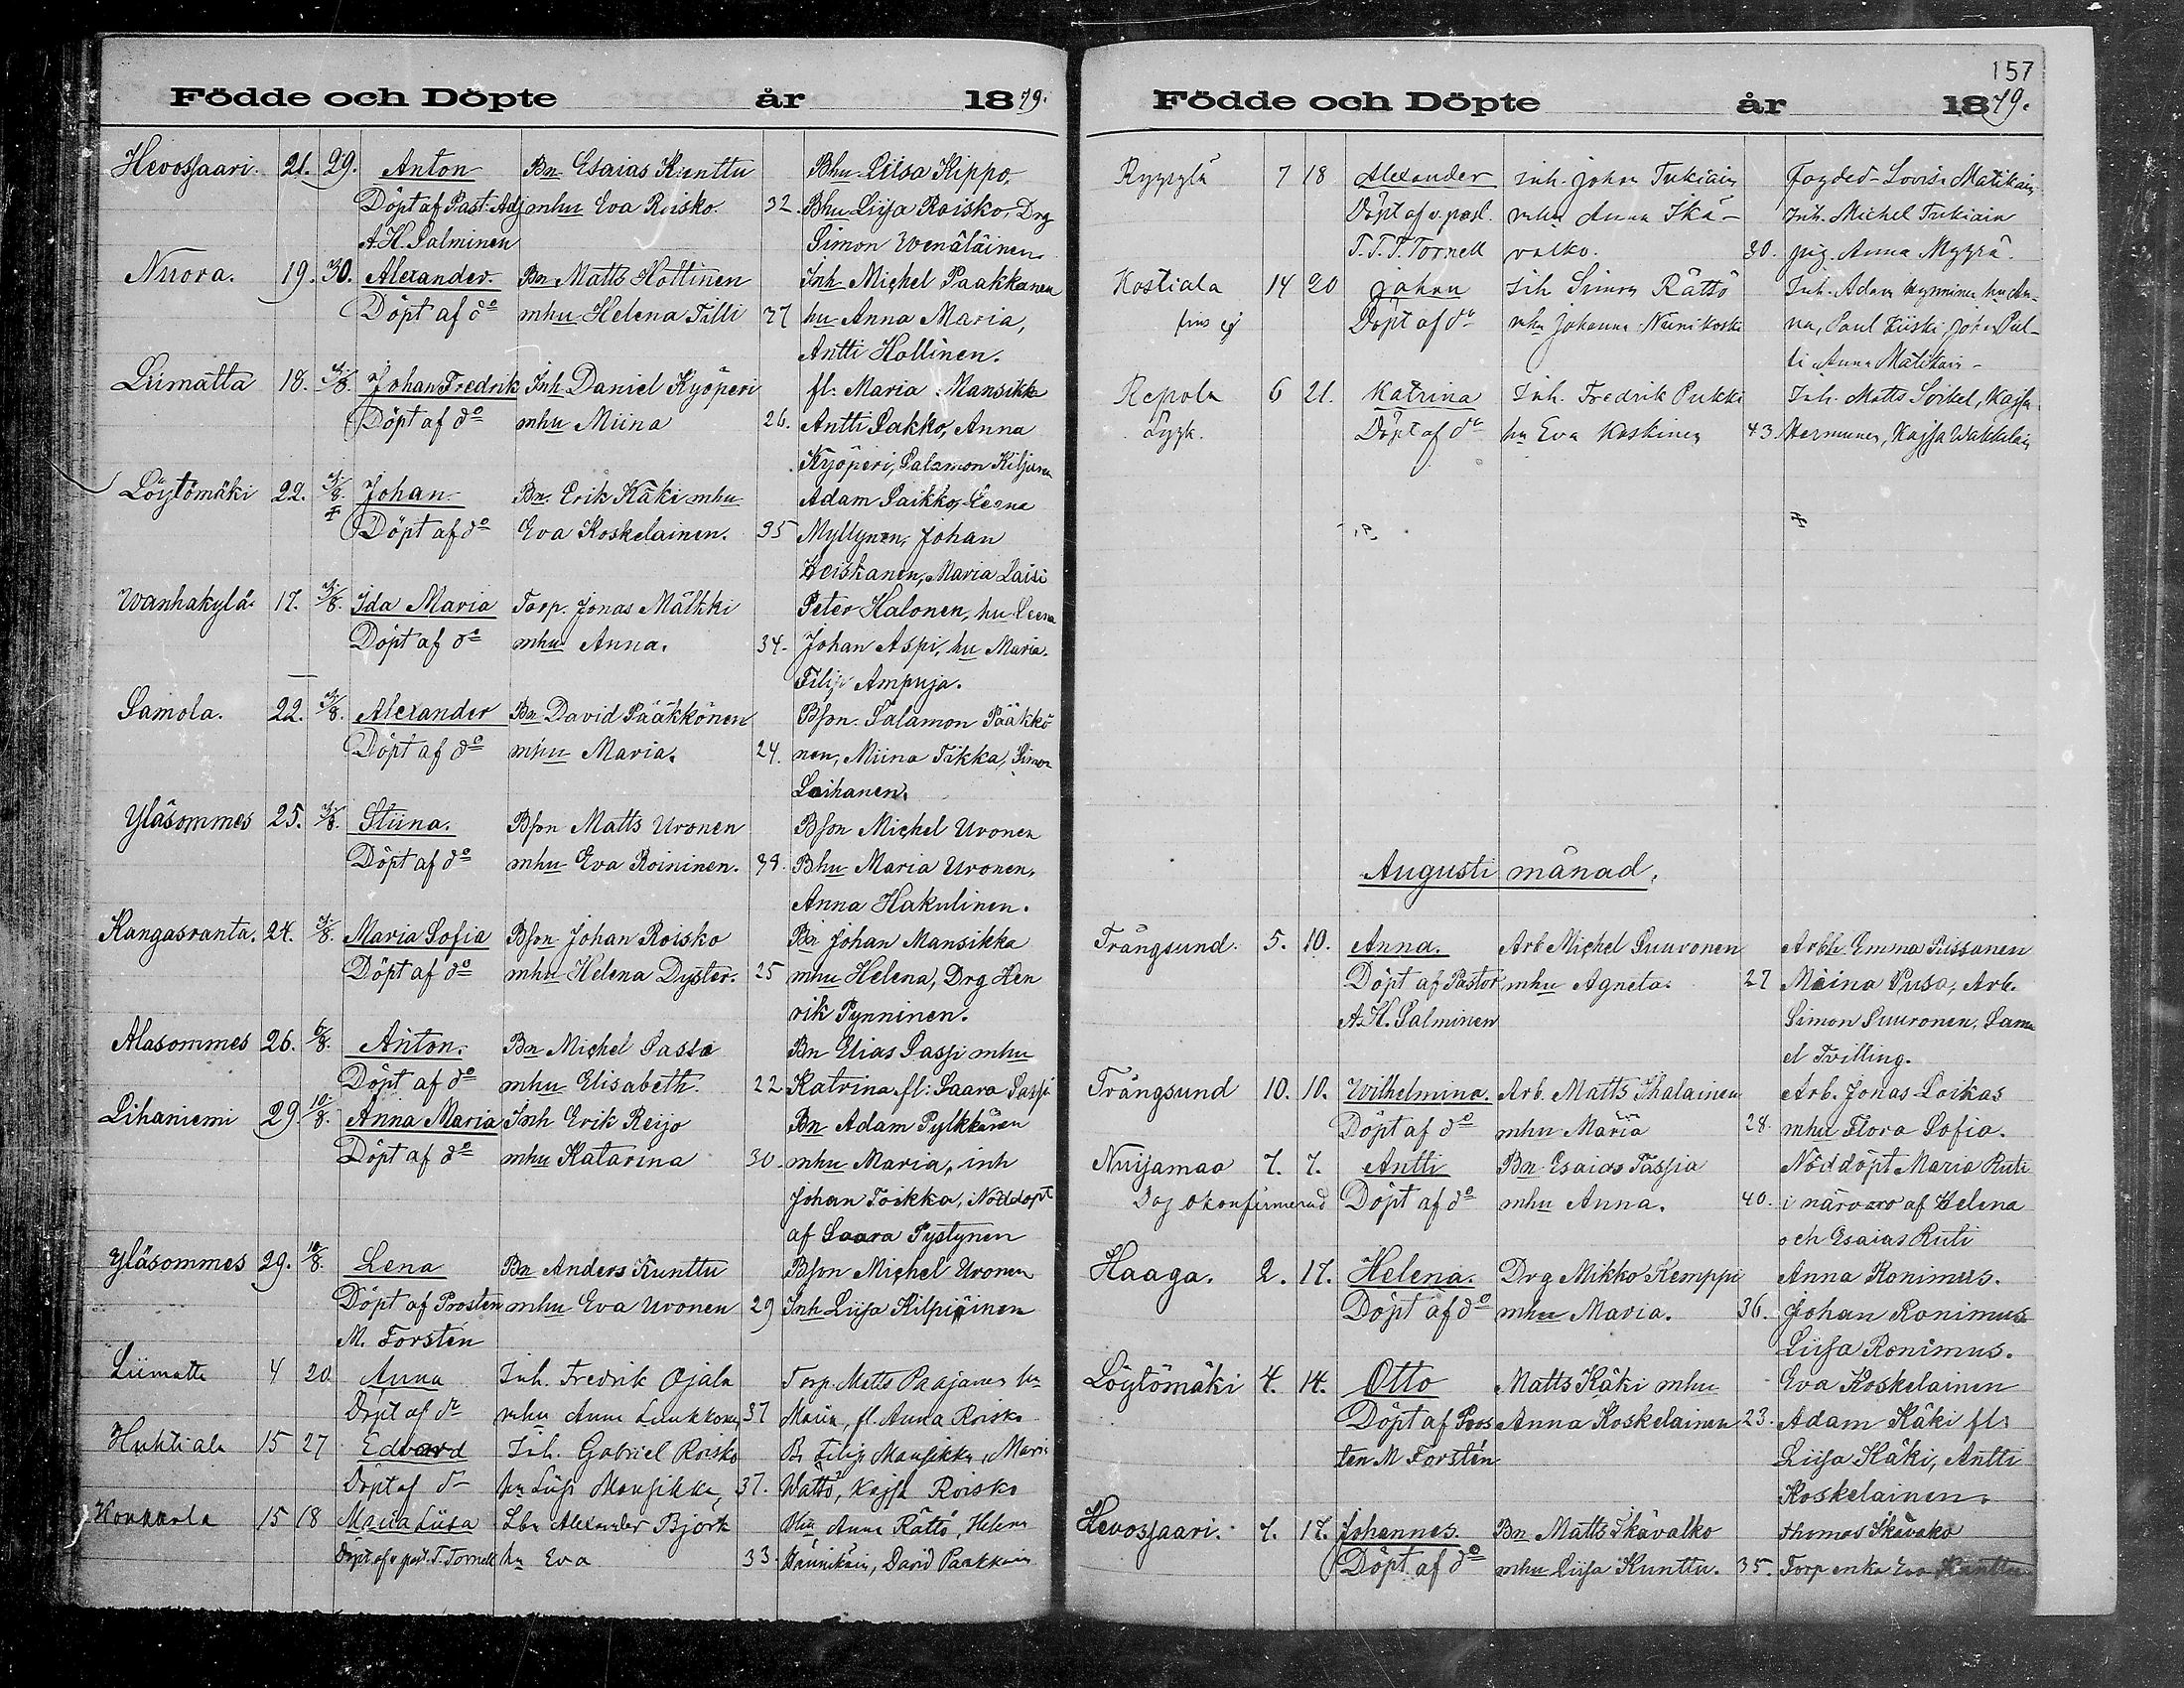 Födde och Döpte år 1879.
Hevossaari. 21. 29. Anton Bn Esaias Kunttu Bhu Liisa Kippo,
Döpt af Past. Adj mhu Eva Roisko. 32. Bhu Liisa Roisko, Drg
A. H. Salminen Simon Wenäläinen.
Nuora. 19. 30. Alexander Bn Matts Hottinen Inh Michel Paakkanen
Döpt af do mhu Helena Tilli 27 hu Anna Maria,
Antti Hollinen.
Liimatta 18. 3/8. Johan Fredrik Inh. Daniel Kyöperi fl: Maria Mansikka
Döpt af do mhu Miina 26. Antti Sakko, Anna
Kyöperi, Salamon Kiljunen
Löytömäki 22. 3/8. Johan Bn. Erik Käki mhu Adam Saikko, Leena
Döpt af do Eva Koskelainen. 35 Myllynen, Johan
Heiskanen, Maria Laisi
Wanhakylä. 17. 3/8. Ida Maria Torp. Jonas Mälkki Peter Halonen, hu Leena
Döpt af do mhu Anna. 34. Johan Aspi, hu Maria.
Filip Ampuja.
Samola. 22. 3/8. Alexander Bn David Pääkkönen Bson. Salamon Pääkkö
Döpt af do mhu Maria. 24. nen, Miina Tikka, Simon
Laihanen.
Yläsommes 25. 3/8. Stiina. Bson Matts Uronen Bson Michel Uronen
Döpt af do mhu Eva Roininen. 38. Bhu Maria Uronen,
Anna Hakulinen.
Kangasranta. 24. 3/8. Maria Sofia Bson Johan Roisko Bn Johan Mansikka
Döpt af do mhu Helena Dyster. 25 mhu Helena, Drg Hen
rik Pynninen.
Alasommes 26. 6/8. Anton. Bn Michel Sassi Bn Elias Sassi mhu
Döpt af do mhu Elisabeth. 22 Katrina, fl: Saara Sassi
Lihaniemi 29. 10/8. Anna Maria Inh Erik Reijo Bn Adam Pylkkänen
Döpt af do mhu Katarina 30. mhu Maria, inh
Johan Toikka, Nöddöpt
af Saara Pystynen
Yläsommes 29. 10/8. Lena Bn Anders Kunttu Bson Michel Uronen
Döpt af Prosten mhu Eva Uronen 29 Inh Liisa Kilpiäinen
M. Forstén
Liimatta 4 20 Anna Inh. Fredrik Ojala Torp. Matts Paajanen hu
Döpt af do mhu Anna Laukkanen 37 Maria, fl. Anna Roisko
Huhtiala 15 27 Edvard Inh. Gabriel Roisko Bn Filip Mansikka, Maria
Döpt af do hu Liisa Mansikka, 37. Wättö, Kajsa Roisko
Konkkala 15 18 Maria Liisa Lbn Alexander Björk Hu Anna Rättö, Helena
Döpt af v. past. T. Tornell hu Eva 33. David Paakkain
157
Födde och Döpte år 1879.
Ryysylä 7 18 Alexander inh. Johan Tukiain Fogded Lovisa Matikain
Döpt af v. past. mhu Anna Skä- Inh. Michel Tukiain
T. T. T. Tornell valko. 30. pig. Anna Myyrä.
Kostiala 14 20 Johan inh Simon Rättö Inh. Adam Kynninen hu An-
Döpt af do mhu Johanna Niinikoski na, Paul Kiiski Johan Pul-
li Anna Matikain
Repola 6 21. Katrina Inh. Fredrik Pukki Inh. Matts Sorkel, Kajsa
Lyyk. Döpt af do hu Eva Koskinen 43. Hermunen, Kajsa Wakkelain
Augusti månad.
Trångsund. 5. 10. Anna. Arb Michel Suuronen Arbh. Emma Pussanen
Döpt af Pastor mhu Agneta. 27 Miina Pusa, Arb.
A. H. Salminen Simon Suuronen, Samu
el Tvilling.
Trångsund 10. 10. Wilhelmina. Arb. Matts Ihalainen Arb. Jonas Loikas
Döpt af do mhu Maria 28. mhu Flora Sofia.
Nuijamaa 7. 7. Antti Bn Esaias Tassia Nöddöpt Maria Ruti
Dog okonfirmerad Döpt af do mhu Anna. 40. i närvaro af Helena
och Esaias Ruti
Haaga. 2. 17. Helena. Drg Mikko Kemppi Anna Ronimus.
Döpt af do mhu Maria. 36. Johan Ronimus
Liisa Ronimus.
Löytömäki 4. 14. Otto Matts Käki mhu Eva Koskelainen
Döpt af Pros Anna Koskelainen 23. Adam Käki fl:
ten M Forstén Liisa Käki, Antti
Koskelainen.
Hevossaari. 7. 17. Johannes. Bn Matts Skävalko Thomas Skävako
Döpt af do mhu Liisa Kunttu. 35. Torp enka Eva Kunttu